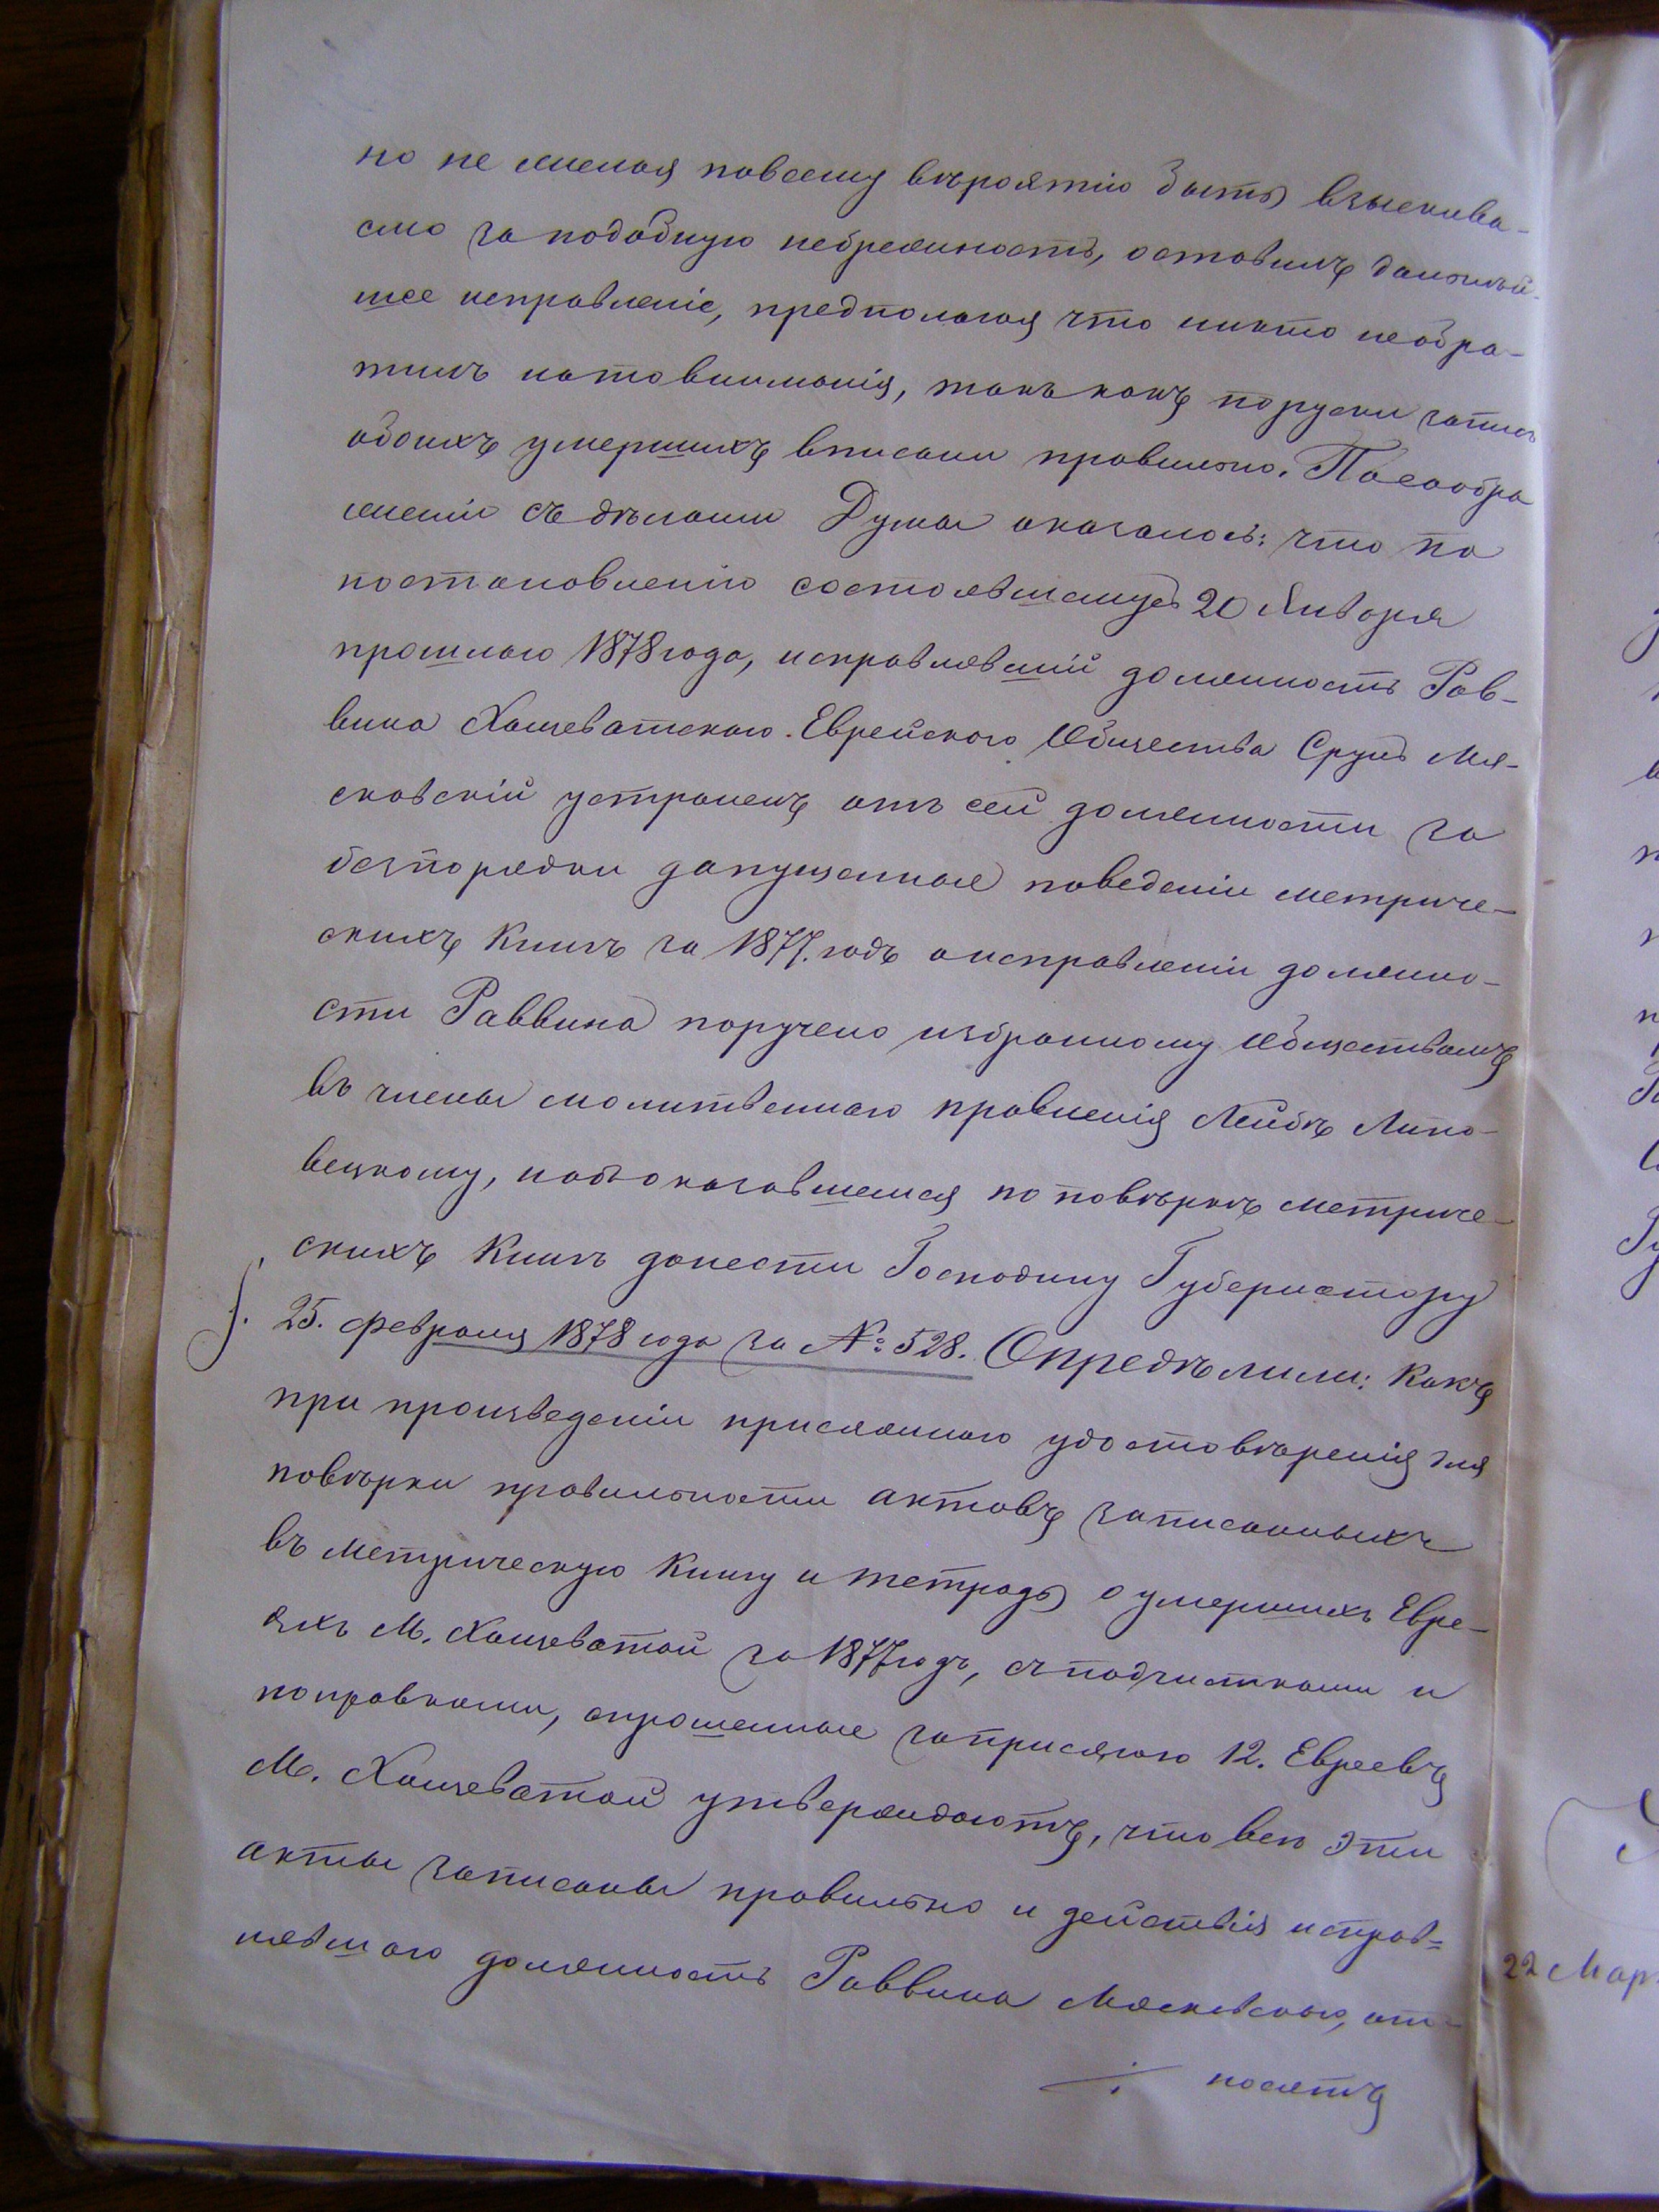 но не желая повсему вѣроятію быть взыскива-
емо за подобную небрежность, оставилъ дальнѣй-
шее исправленіе, предполагая что никто необра-
тилъ натовниманія, такъ какъ поруски запись
обоихъ умершихъ вписани правильно. Посообра
женіи съ дѣлами Думы оказалось: что по
постановленію состоявшемуся 20 Января
прошлаго 1878 года, исправлявшій должность Рав-
вина Хощеватскаго Еврейскаго Общества Сруль Мя-
сковскій устраненъ отъ сей должности за
безпорядки допущенные поведеніи метриче-
скихъ книгъ за 1877. годъ а исправленіи должно-
сти Раввина поручено избранному Обществомъ
въ члены молитвеннаго правленія Лейбѣ Липо-
вецкому, и объоказавшемся по повѣркѣ метриче-
скихъ книгъ донести Господину Губернатору
25. февраля 1878 года за №: 528. Опредѣлили: Какъ
при произведеніи присяжнаго удостовѣренія для
повѣрки правильности актовъ записанныхъ
въ метрическую книгу и тетрадь о умершихъ Евре-
яхъ М. Хощеватой за 1877 годъ, съ подчистками и
поправками, спрошенные заприсягою 12. Евреевъ
М. Хощеватой утверждаютъ, что всѣ эти
акты записаны правильно и действія исправ=
лявшаго должность Раввина Мясковскаго, от-
носятъ
22 Мар